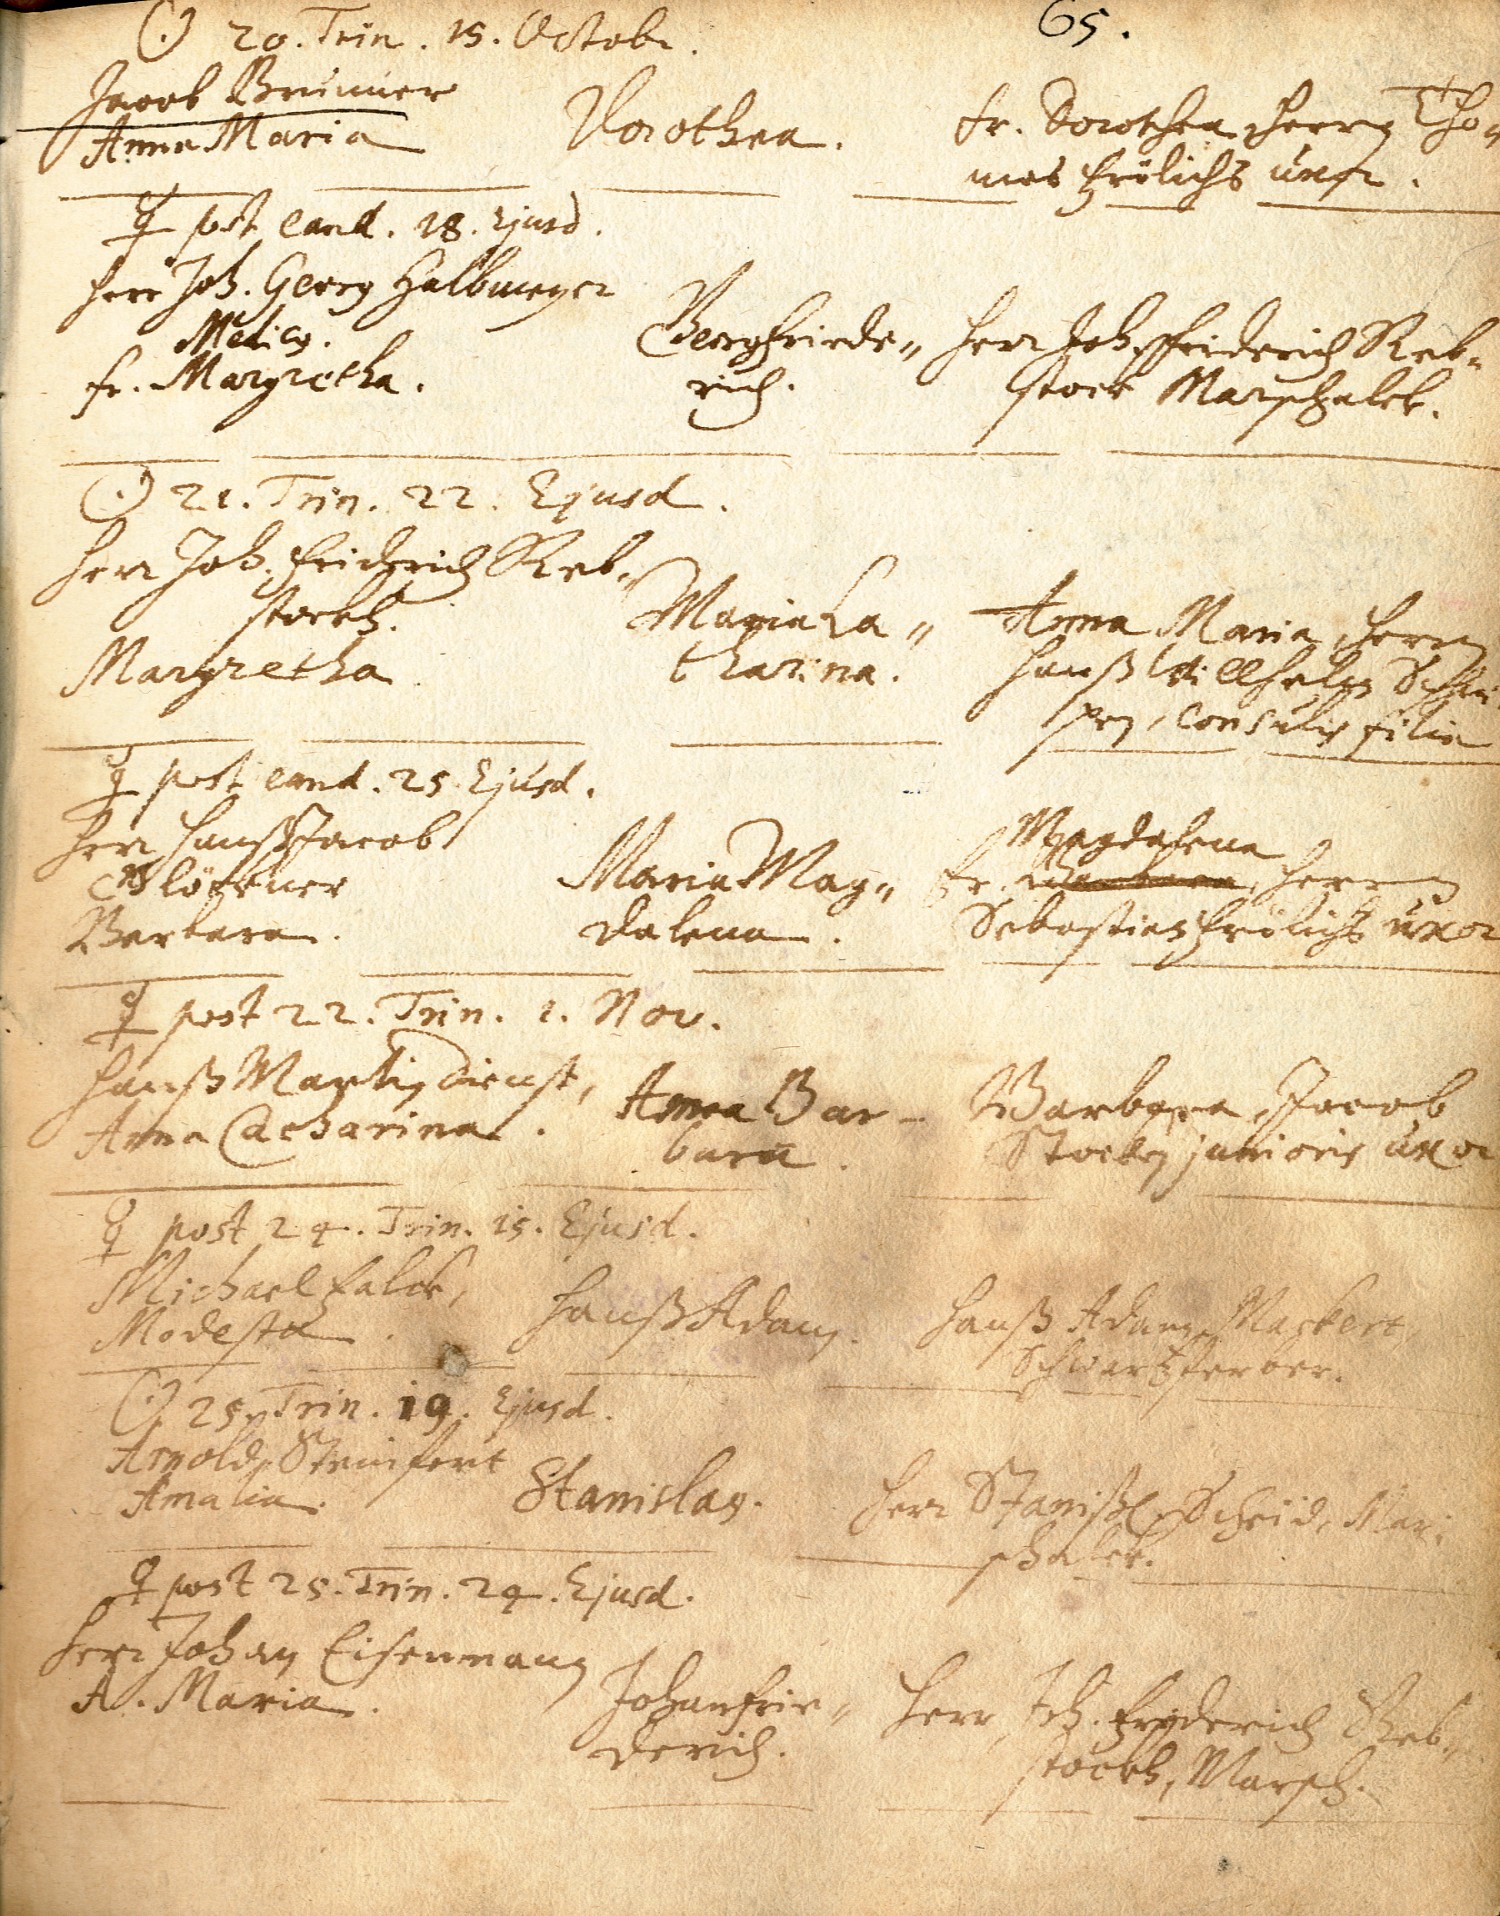 65.
☉ 20. Trin. 15. Octobr.
Jacob Brunner
Anna Maria
Dorothea.
fr. Dorothea Herrn Tho
mas Frölichs uxor.
☿ post eand. 18. Ejusd.
Herr Joh. Georg Halbmeyer
Medicq.
fr. Margretha.
Georg Friede„
rich.
Herr Joh. Friderich Reb„
stock Marschalck.
☉ 21. Trin. 22. Ejusd.
Herr Joh. Friderich Reb„
stockh.
Margretha
Maria Ca„
tharina.
Anna Maria, Herrn
Hanß Willhelm
Consulis filia
☿ post eand. 25. Ejusd.
Herr Hanß Jacob
Barbara.
Maria Mag„
dalena.
Magdalena
fr. Barbara, Herrn
Sebastian Frölichs uxor
☿ post 22. Trin. 1. Nov.
Hanß Martin Dienst,
Anna Catharina.
Anna Bar-
bara.
Barbara, Jacob
junioris uxor
☿ post 24. Trin. 15. Ejusd.
Michael Falck,
Modesta.
Hanß Adam.
Hanß Adam Mackert,
Schwartzferber.
☉ 25. Trin. 19. Ejusd.
Arnold Steinfort
Amalia.
Stanislaq.
Herr Stanißl. Scheid, Mar:
schalck.
♀ post 25. Trin. 24. Ejusd.
Herr Johan Eisenmann
A. Maria.
Johan Frie„
derich.
Herr Joh. Friderich Reb„
stockh, Marsch.